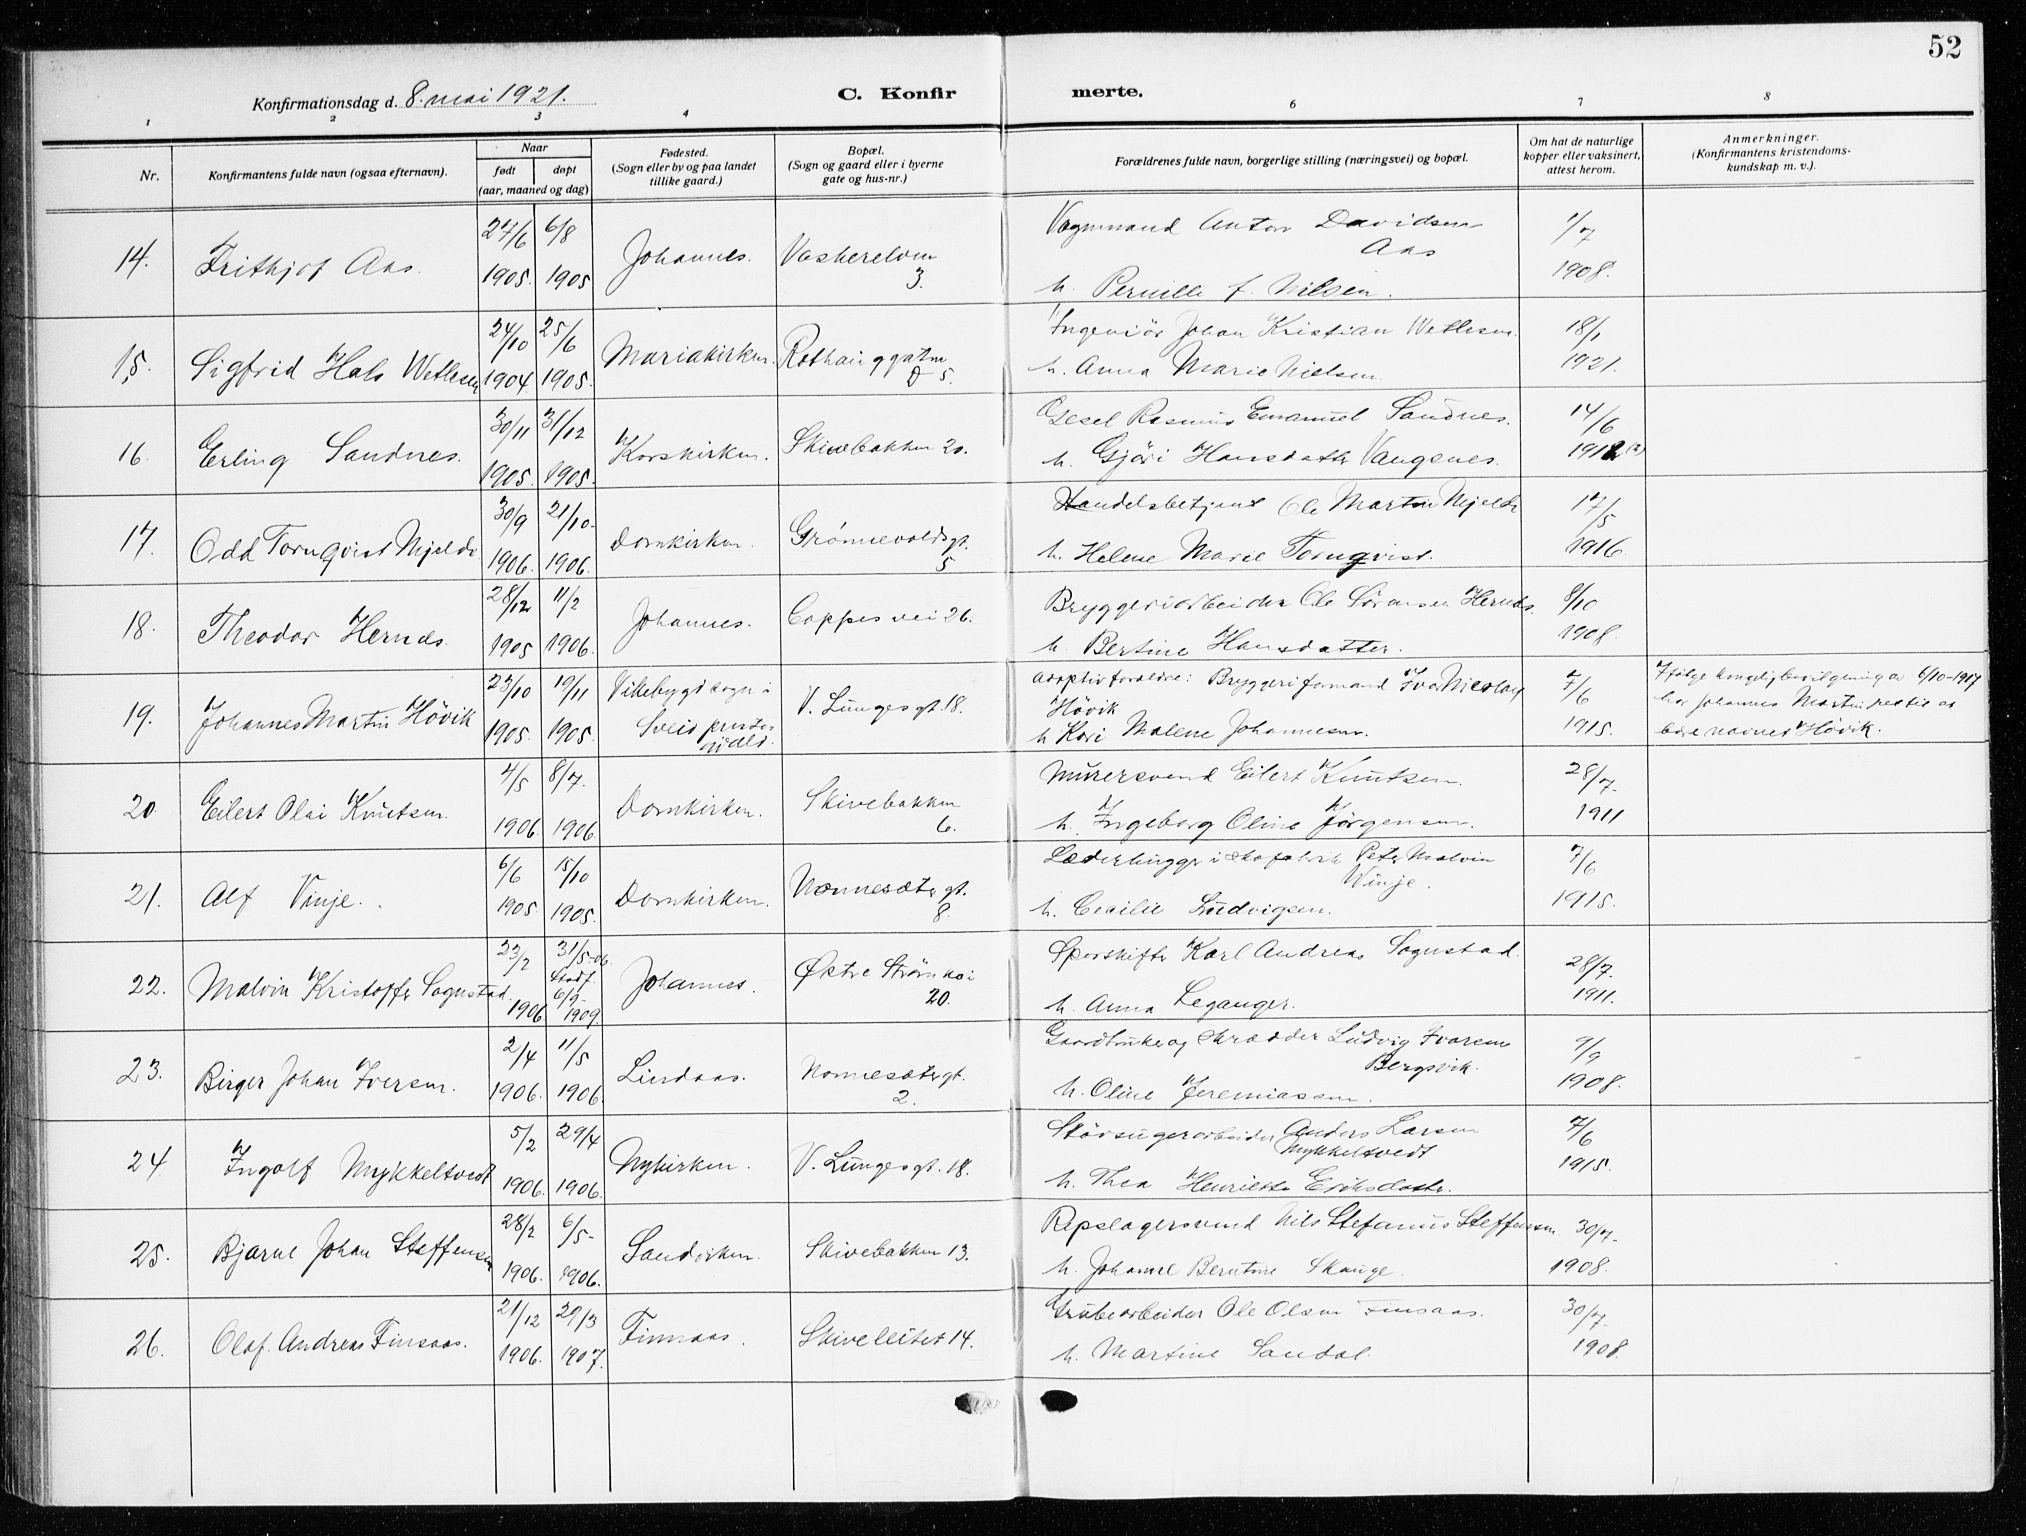 52
Konfirmationsdag d. 8. mai 1921.
C. Konfirmerte.
1 2 3 4 6 7 8
Nr.
Konfirmantens fulde navn (ogsaa efternavn).
Naar
født døpt
(aar, maaned og dag)
Fødested.
(Sogn eller by og paa landet
tillike gaard.)
Bopæl.
(Sogn og gaard eller i byerne
gate og hus-nr.)
Forældrenes fulde navn, borgerlige stilling (næringsvei) og bopæl.
Om hat de naturlige
kopper eller vaksinert,
attest herom.
Anmerkninger.
(Konfirmantens kristendoms-
kundskap m. v.).
14. Frithjof Aas. 27/6 1905. 6/8 1905 Johannes. 3.
Anton Davidsen
Aas
h. Pernille f. Nilsen.
1/7
1908.
15. Sigfrid Hals Wetlesen 24/10 1904. 25/6 1905. Mariakirken. 5.
Ingeniör Johan Kristian Wetlesen.
h. Anna Marie Nielsen
18/1
1921.
16. Erling Sandnes. 30/11 1905. 31/12 1905. Korskirken. Skivebakken 20.
Rasmus Emanuel Sandnes.
h. Gjöri Hansdatter Vangsnes.
14/6
1912 (2)
17. Odd Tornqvist Mjelde 30/9 1906. 21/10 1906. Domkirken. Grønnevoldsgt. 5
Handelsbetjent Ole Martin Mjelde
h. Helene Marie Tornqvist.
17/5
1916.
18. Theodor Hernes. 28/12 1905 11/2 1906. Johannes. Coppes vei 26.
Bryggeriarbeider Ole Sörensen Hernes.
h. Bertine Hansdatter.
8/10
1908.
19. Johannes Martin Hövik 23/10 1905. 19/11 1905. Vikebygd sogn i
Sveid prestegjæld. V. Lungegt. 18.
Adoptivforældre: Bryggeriformand Ivar Nicolay
Hövik
h. Kari Malene Johannesen.
7/6
1915.
Ifölge kongelig bevilgning av 6/10-1917
har Johannes Martin ret til at
bære navnet Hövik.
20. Eilert Olai Knutsen. 4/5 1906. 8/7 1906. Domkirken. Skivebakken 6.
Murersvend Eilert Knutsen.
h. Ingeborg Oline Jörgensen.
28/7
1911
21. Alf Vinje. 6/6 1905. 15/10 1905. Domkirken. Nonnesætergt. 8.
i skofabrik Peter Malvin
Vinje.
h. Cecilie Ludvigsen.
7/6
1915.
22. Malvin Kristoffer Sognstad. 23/2 1906 31/5-06. Stadf. 6/9-1909. Johannes. Østre Strømkai 20.
Sporskifter Karl Andreas Sognstad.
h. Anna Leganger.
28/7
1911.
23. Birger Johan Iversen. 2/4 1906. 11/5 1906. Lindaas. Nonnesætergt. 2.
Gaardbruker og skrædder Ludvig Iversen
Bergsvik.
h. Oline Jeremiassen.
9/9
1908.
24. Ingolf Mykkeltvedt 5/2 1906. 29/4 1906. Nykirken. V. Lungegt. 18.
Stövsugerarbeider Anders Larsen
Mykkeltvedt
h. Thea Henriette Eriksdatter.
7/6
1915.
25. Bjarne Johan Steffensen 28/2 1906. 6/5 1906. Sandviken. Skivebakken 13.
Repslagersvend Nils Stefanus Steffensen
h. Johanne Berntine Skauge.
30/7
1908.
26. Olaf Andreas Finsaas. 21/12 1906. 29/3 1907. Finnaas. Skiveleitet 14.
Grubearbeider Ole Olsen Finsaas.
h. Martine Sandal.
30/7
1908.